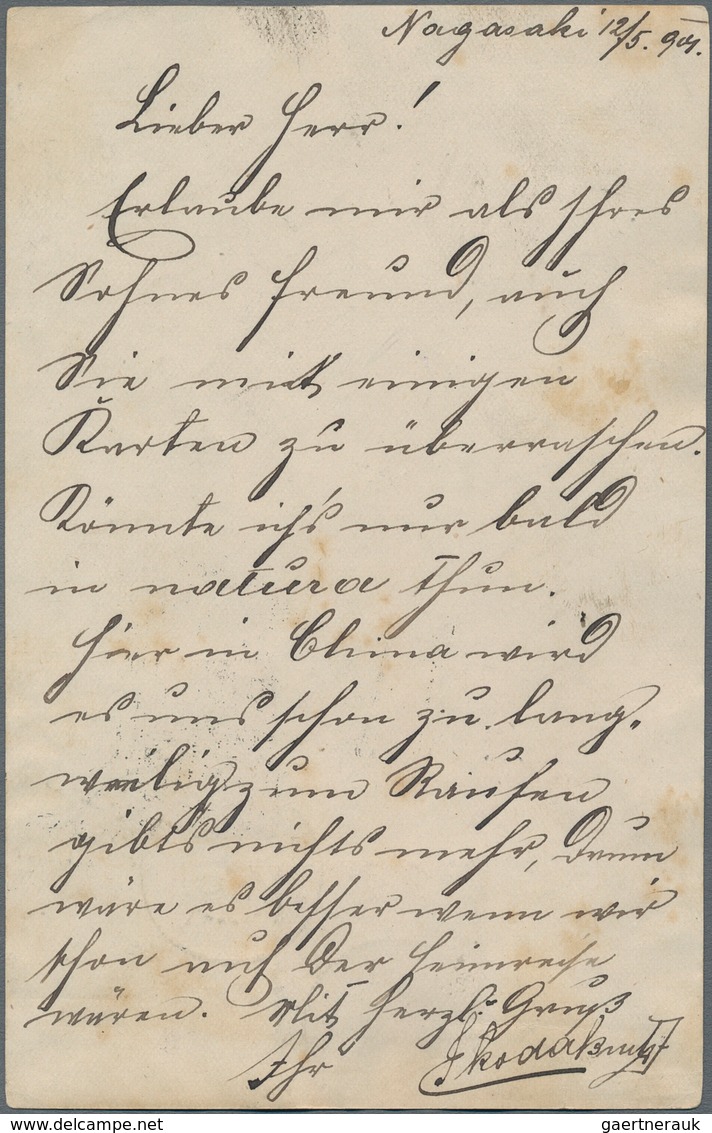 Nagasaki 12/5. 901.
Lieber Herr!
Erlaube mir als Ihres
Sohnes Freund, auch
Sie mit einigen
Karten zu überraschen.
Könnte ich's nur bald
in natura thun.
Hier in China wird
es uns schon zu lang-
weilig zum Raufen
gibts nichts mehr, drum
wäre es besser wenn wir
schon auf der Heimreise
wären. Mit herzl. Gruß
Ihr
© www.delcampe.net
gaertnerauk